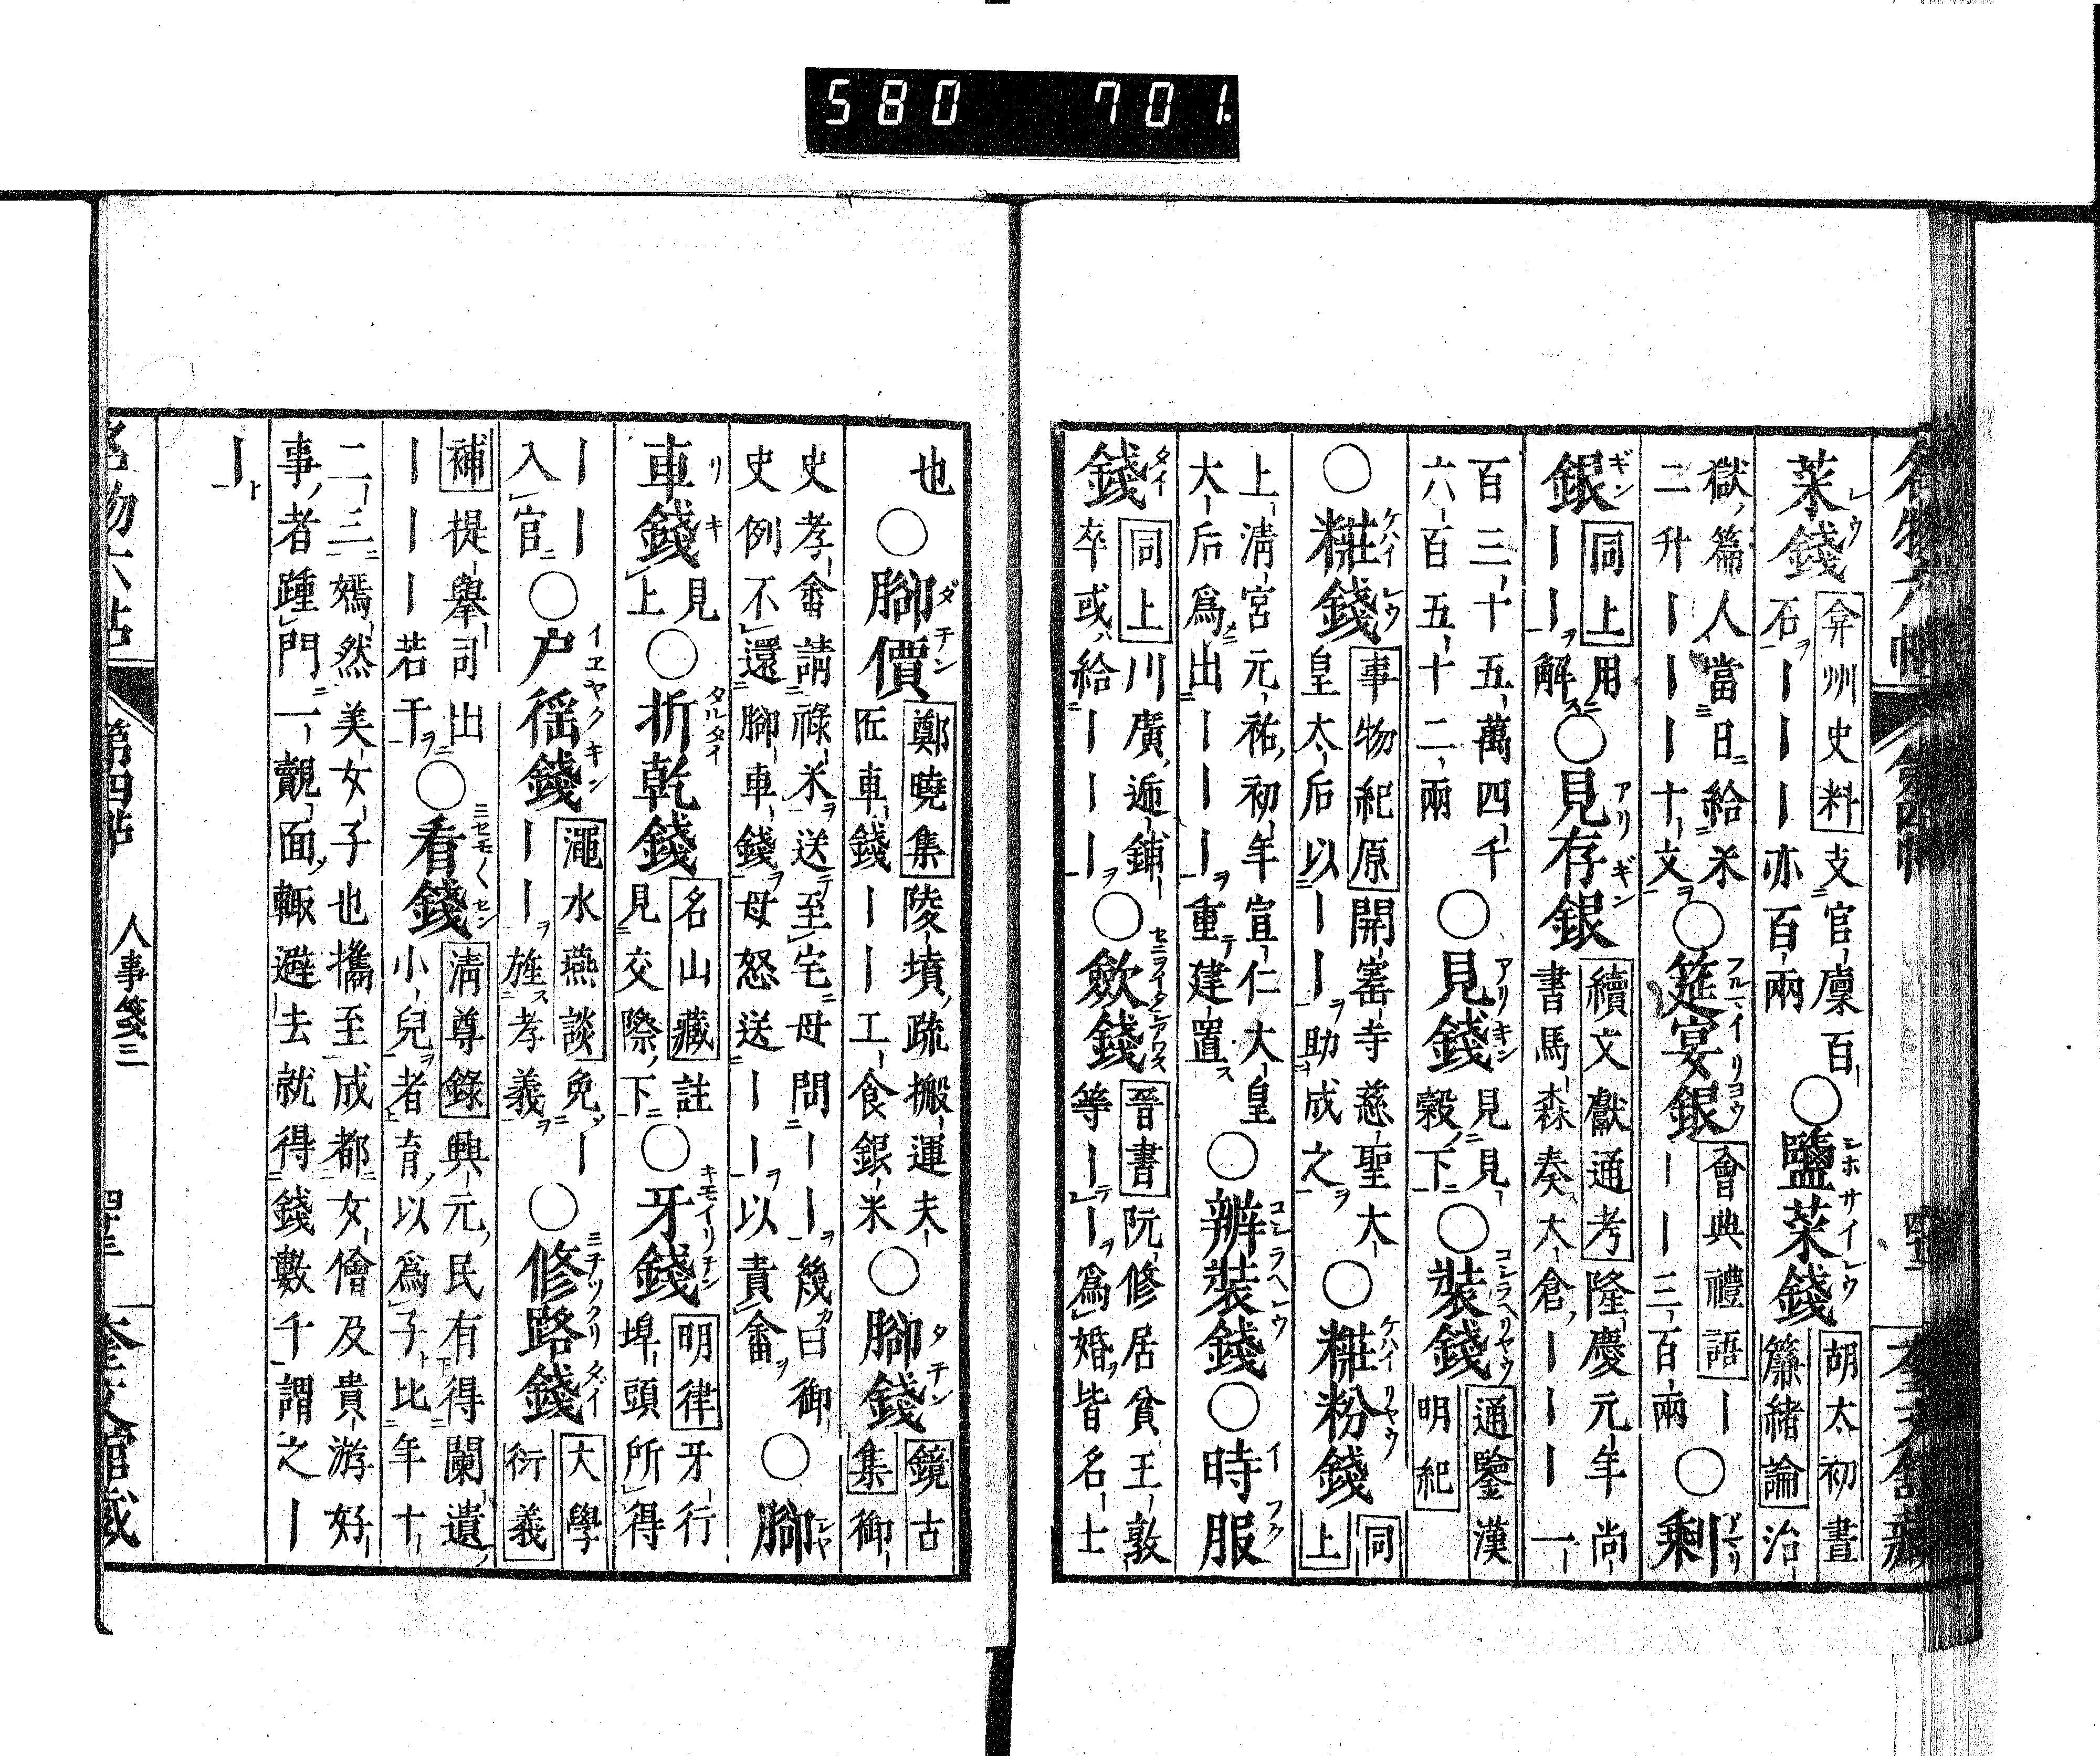 580 701
名物六帖 第四帖 奎文館藏
菜錢 弇州史料 支官廩百石ーーー亦百兩 ○鹽菜錢 胡太初晝簾緒論 治
獄篇人當日給米二升ーーー十文 ○筵宴銀 會典禮語 ーーー三百兩 ○剩
銀 同上 用ーー解 ○見存銀 續文獻通考 隆慶元年尚書馬森奏太倉ーーー一
百三十五萬四千六百五十二兩 ○見錢 見見穀下 ○裝錢 通鑒漢明紀
○糚錢 事物紀原 開寚寺慈聖太皇太后以ーー助成之 ○糚粉錢 同上
上清宮元祐初年宣仁大皇大后爲出ーーー重建置 ○辦裝錢 ○時服
錢 同上 川廣逓鋪卒或給ーーー ○斂錢 晉書 阮修居貧王敦等ーー爲婚皆名士
也 ○腳價 鄭曉集 陵墳疏搬運夫匠車錢ーー工食銀米 ○腳錢 鏡古集 御
史孝畬請祿米送至宅母問ーー幾曰御史例不還腳車錢母怒送ーー以責畬 ○腳
車錢 見上 ○折乾錢 名山藏 註見交際下 ○牙錢 明律 牙行埠頭所得
ーーー入官 ○户徭錢 澠水燕談 免ーーー旌孝義 ○修路錢 大學衍義
補 提舉司出ーーー若干 ○看錢 清尊錄 興元民有得闌遺小兒者育以爲子比年十
二三嫣然美女子也攜至成都女儈及貴游好
事者踵門一覿面輒避去就得錢數千謂之ー
ー
名物六帖 第四帖 人事箋三 四十三 奎文館藏